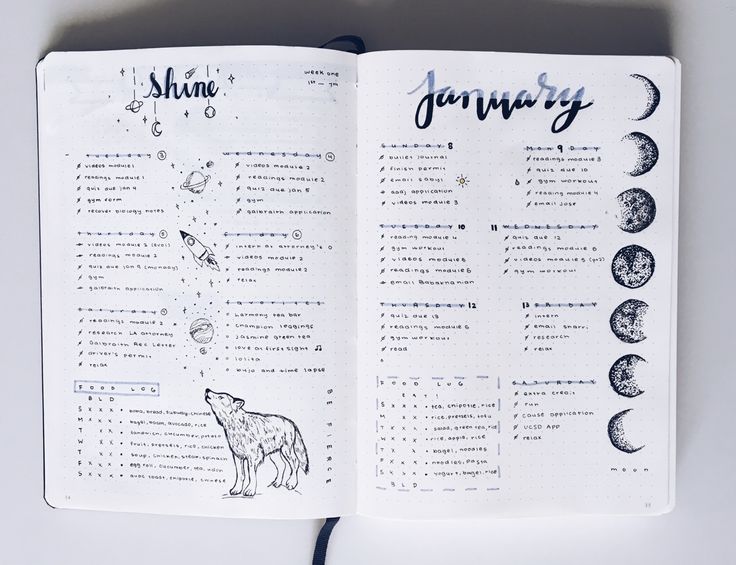 shine
week one
1st — 7th
tuesday 3
videos module 1
readings module 1
quiz due jan 4
gym form
recover biology notes
wednesday 4
videos module 2
readings module 2
quiz due jan 5
gym
galbraith application
thursday 5
videos module 2 (evol)
readings module 2
quiz due jan 9 (monday)
gym
galbraith application
6
intern at attorney's o
videos module 2
readings module 2
relax
saturday 7
readings module 2
research LA attorney
Galbraith Rec Letter
driver's permit
relax
favorites
harmony tea bar
champion leggings
jasmine green tea
love at first sight ♫
lolita
bujo and time lapse
FOOD LOG
B L D
S x x x • bread, subway, chinese
M x x x • bagel, boom, avocado, rice
T x x x • sandwich, cucumber, potato
W x x • fruit, pretzels, rice, chicken
T x • soup, chicken, steak, spinach
F x x x • egg roll, cucumber, tea
S x x x • avoc toast, chipotle, chinese
14
January
SUNDAY 8
bullet journal
finish permit
email sabyl
application
videos module 3
MONDAY 9
readings module 3
quiz due 10
gym workout
reading module 4
email jose
TUESDAY 10
reading module 4
gym workout
videos module 5
readings module 5
email Babaknanian
11 WEDNESDAY
quiz due 12
readings module 6
videos module 5 (pt2)
gym workout
THURSDAY 12
quiz due 13
readings module 6
gym workout
read
13 FRIDAY
intern
email snarr.
research
relax
FOOD LOG
EAT!
S x x x • tea, chipotle, rice
M x x • rice, pretzels, tofu
T x x x • salad, green tea, rice
W x x x • rice, apple, rice
T x • bagel, noodles
F x x x • noodles, pasta
S x x x • yogurt, bagel, rice
B L D
SATURDAY
extra credit
run
cause application
UCSD App
relax
moon